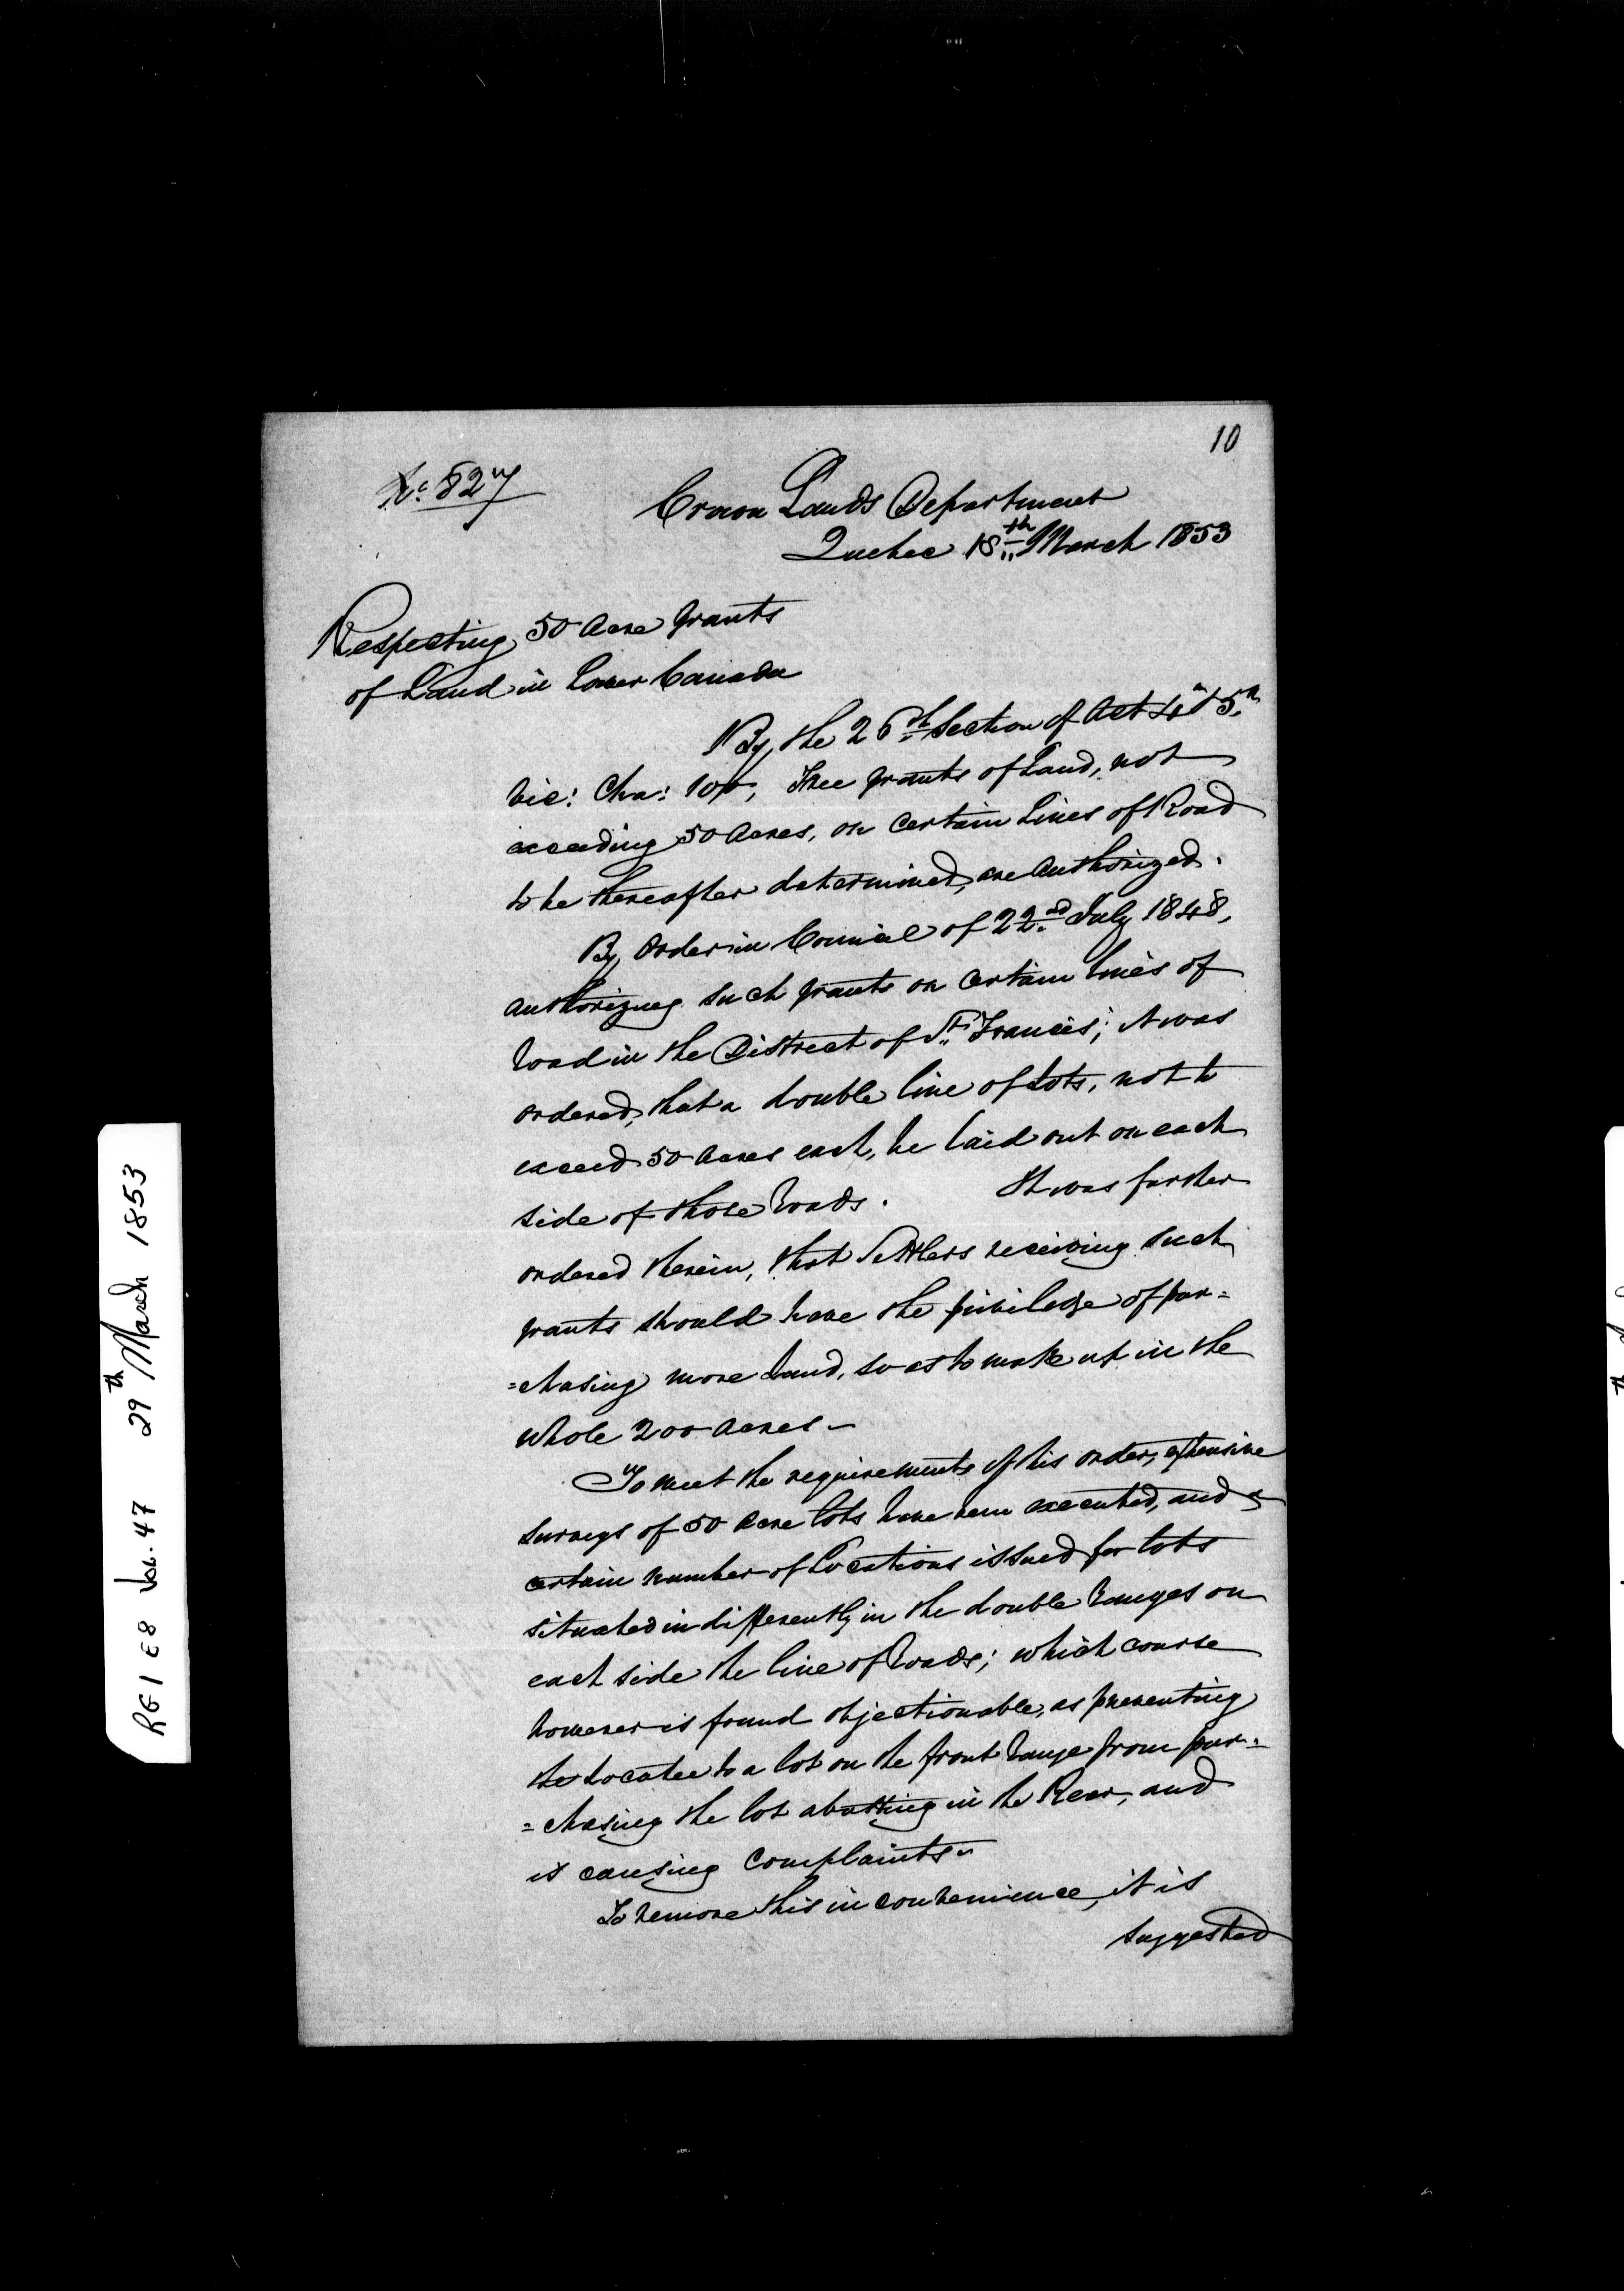 10
No. 827
Crown Lands Department
Quebec 18th March 1853
Respecting 50 Acre Grants
of Land in Lower Canada
By the 26th Section of Act 4th & 5th
Vic: Cha: 100, Free grants of Land, not
exceeding 50 Acres, on certain Lines of Road
to be thereafter determined, are authorized.
By Order in Council of 22nd July 1848,
authorizing such grants on certain lines of
Road in the District of St. Francis; it was
ordered, that a double line of Lots, not to
exceed 50 Acres each, be laid out on each
side of those Roads. It was further
ordered therein, that Settlers receiving such
grants should have the privilege of pur=
=chasing more Land, so as to make up in the
whole 200 Acres –
To meet the requirements of this order, extensive
surveys of 50 Acre lots have been executed, and a
certain number of Locations issued for lots
situated indifferently in the double Ranges on
each side the line of Roads; which course
however is found objectionable, as preventing
the Locatee to a lot on the front Range from pur=
=chasing the lot abutting in the Rear, and
is causing complaints –
To remove this inconvenience, it is
suggested
RG 1 E8 Vol. 47 29th March 1853